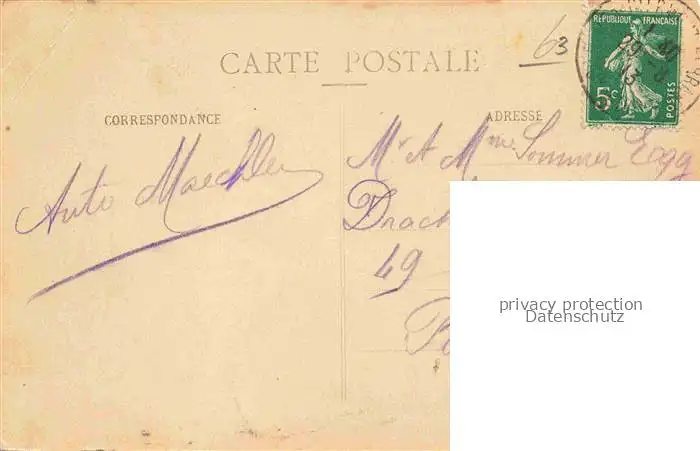 63
CARTE POSTALE
RÉPUBLIQUE FRANÇAISE
5c
POSTES
CORRESPONDANCE
ADRESSE
Mr et Mme Sommer Egg
Auto Maechler
Drach
49
privacy protection
Datenschutz